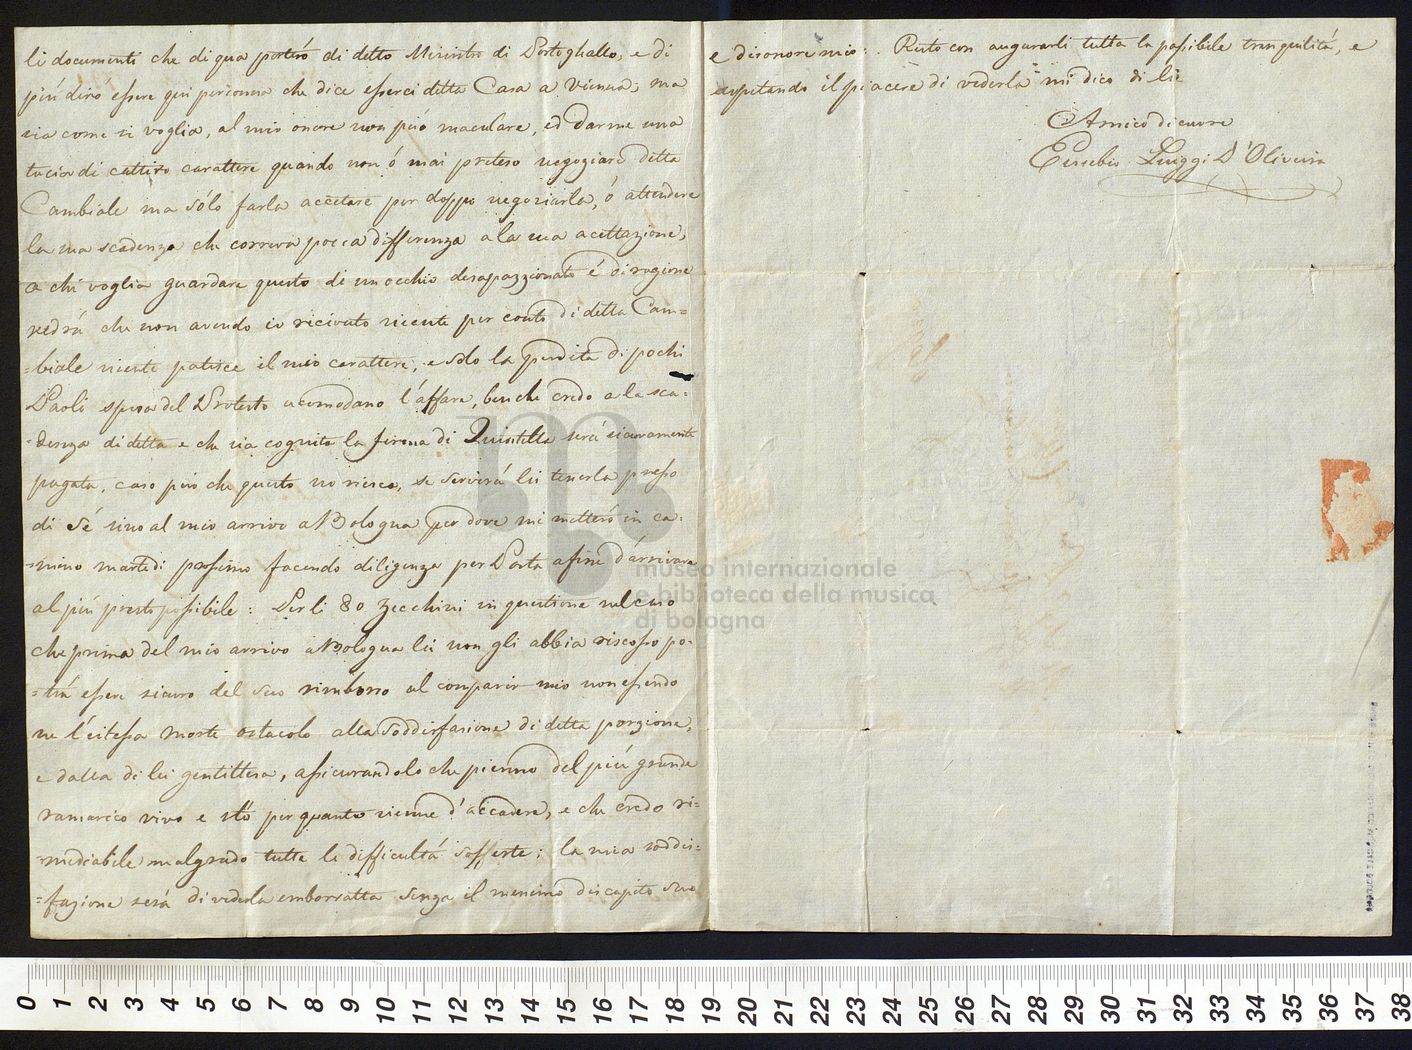 li documenti che di qua porterò di detto Ministro di Portoghallo, e di
più dirò essere qui persona che dice esserci detta Casa a Vienna, ma
sia come si voglia, al mio onore non può maculare, ed darme una
tacia di cattivo carattere quando non ó mai preteso negoziare detta
Cambiale ma sólo farla accetare per doppo negoziarla, ó attendere
la sua scadenza che correva pocca differenza a la sua acettazione,
a chi voglia guardare questo di un occhio desapazzionato é di ragione
vedrá che non avendo io ricivuto niente per conto di detta Cam=
=biale niente patisce il mio carattere, e solo la perdita di pochi
Paoli spesa del Protesto acomodano l'affare, benche credo a la sca=
=denza di detta e che sia cognita la firma di Quintella será sicuramente
pagata, caso però che questo no riesca, se servirá lei tenerla presso
di Sé sino al mio arrivo a Bologna per dove mi metteró in ca=
=mino martedì prossimo facendo diligenza per Posta afine d'arrivare
al più presto possibile: Per li 80 zecchini in questione nel caso
che prima del mio arrivo a Bologna lei non gli abbia riscosso po=
=trà essere sicuro del suo rimborso al comparir mio non essendo
ne l'istessa morte ostacolo alla soddisfasione di detta porzione,
e dalla di lei gentillesa, assicurandolo che pienno del più grande
ramarico vivo e stó per quanto vienne d'accadere, e che credo ri=
=mediabile malgrado tutte le difficultá sofferte; la mia soddis=
=fazione será di vederla emborsatta senza il menimo discapito suo
e disonore mio: Resto con augurarli tutta la possibile tranquilitá, e
aspetando il piacere di vederla mi dico di lei
Amico di cuore
Eusebio Luiggi D'Oliveira
museo internazionale
e biblioteca della musica
di bologna
0 1 2 3 4 5 6 7 8 9 10 11 12 13 14 15 16 17 18 19 20 21 22 23 24 25 26 27 28 29 30 31 32 33 34 35 36 37 38